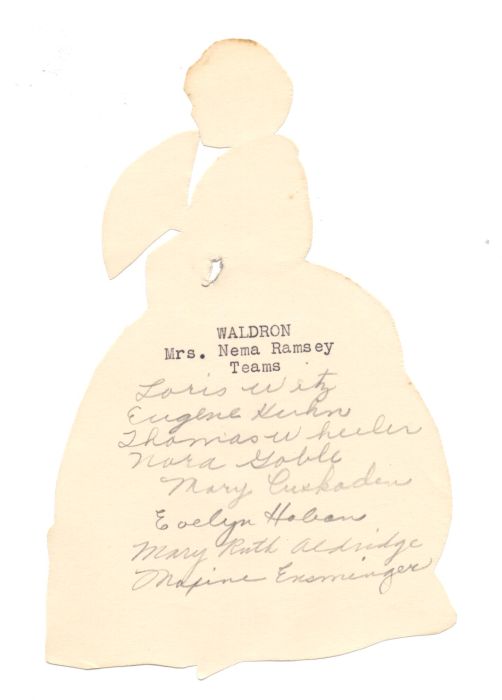 WALDRON
Mrs. Nema Ramsey
Teams
Loris Wetz
Eugene Kuhn
Thomas Wheeler
Nora Goble
Mary Cuskaden
Evelyn Hoban
Mary Ruth Aldridge
Maxine Ensminger